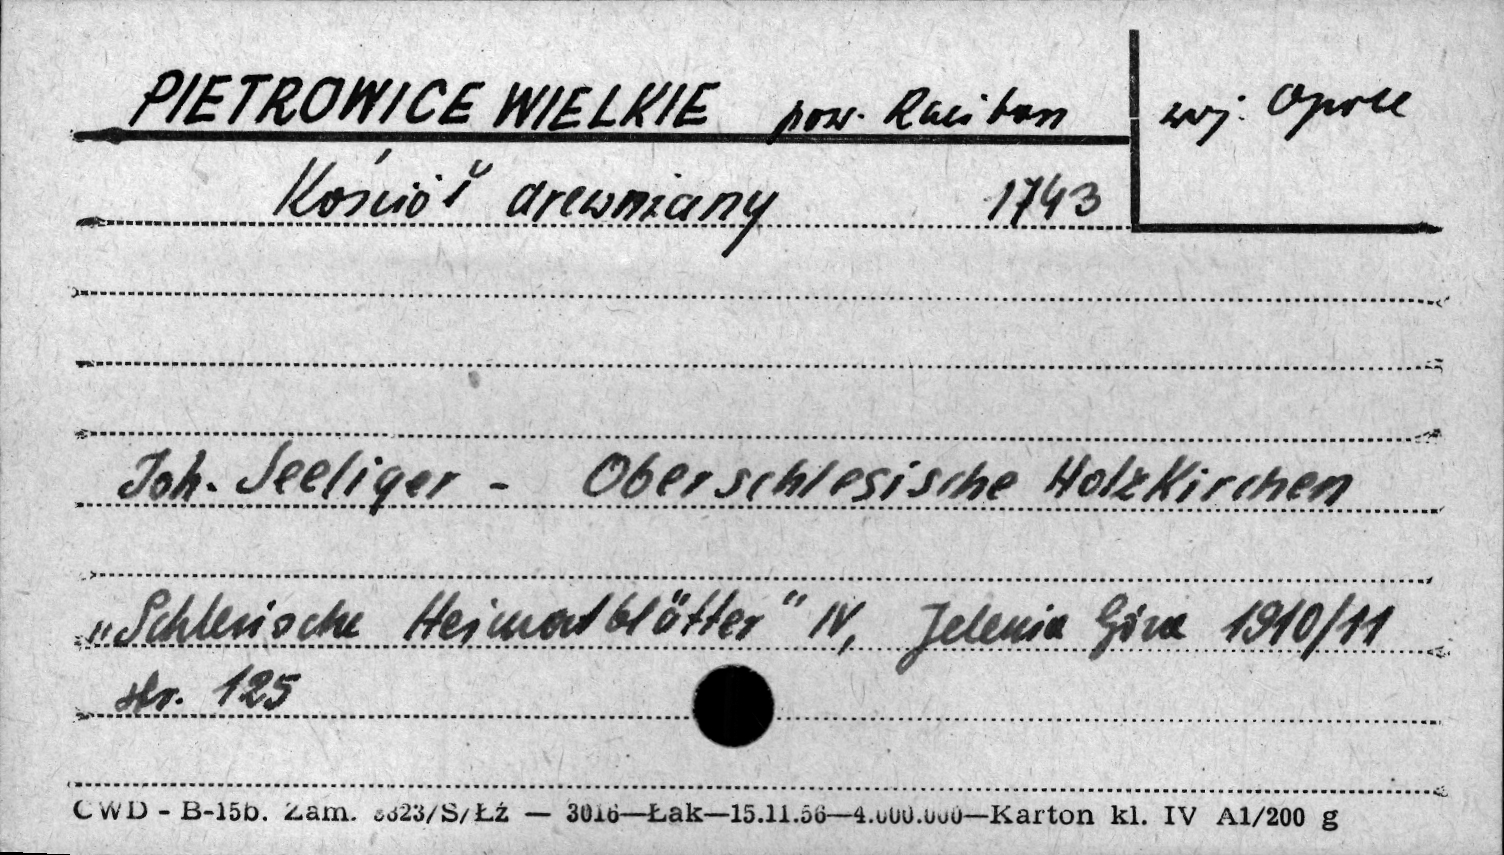 PIETROWICE WIELKIE pow. Racibórz woj. Opole
Kościół drewniany 1743
Joh. Seeliger - Oberschlesische Holzkirchen
„Schlesische Heimatblätter" IV, Jelenia Góra 1910/11
str. 125
CWD - B-15b. Zam. 8823/S/Łź — 3016—Łak—15.11.56—4.000.000—Karton kl. IV A1/200 g